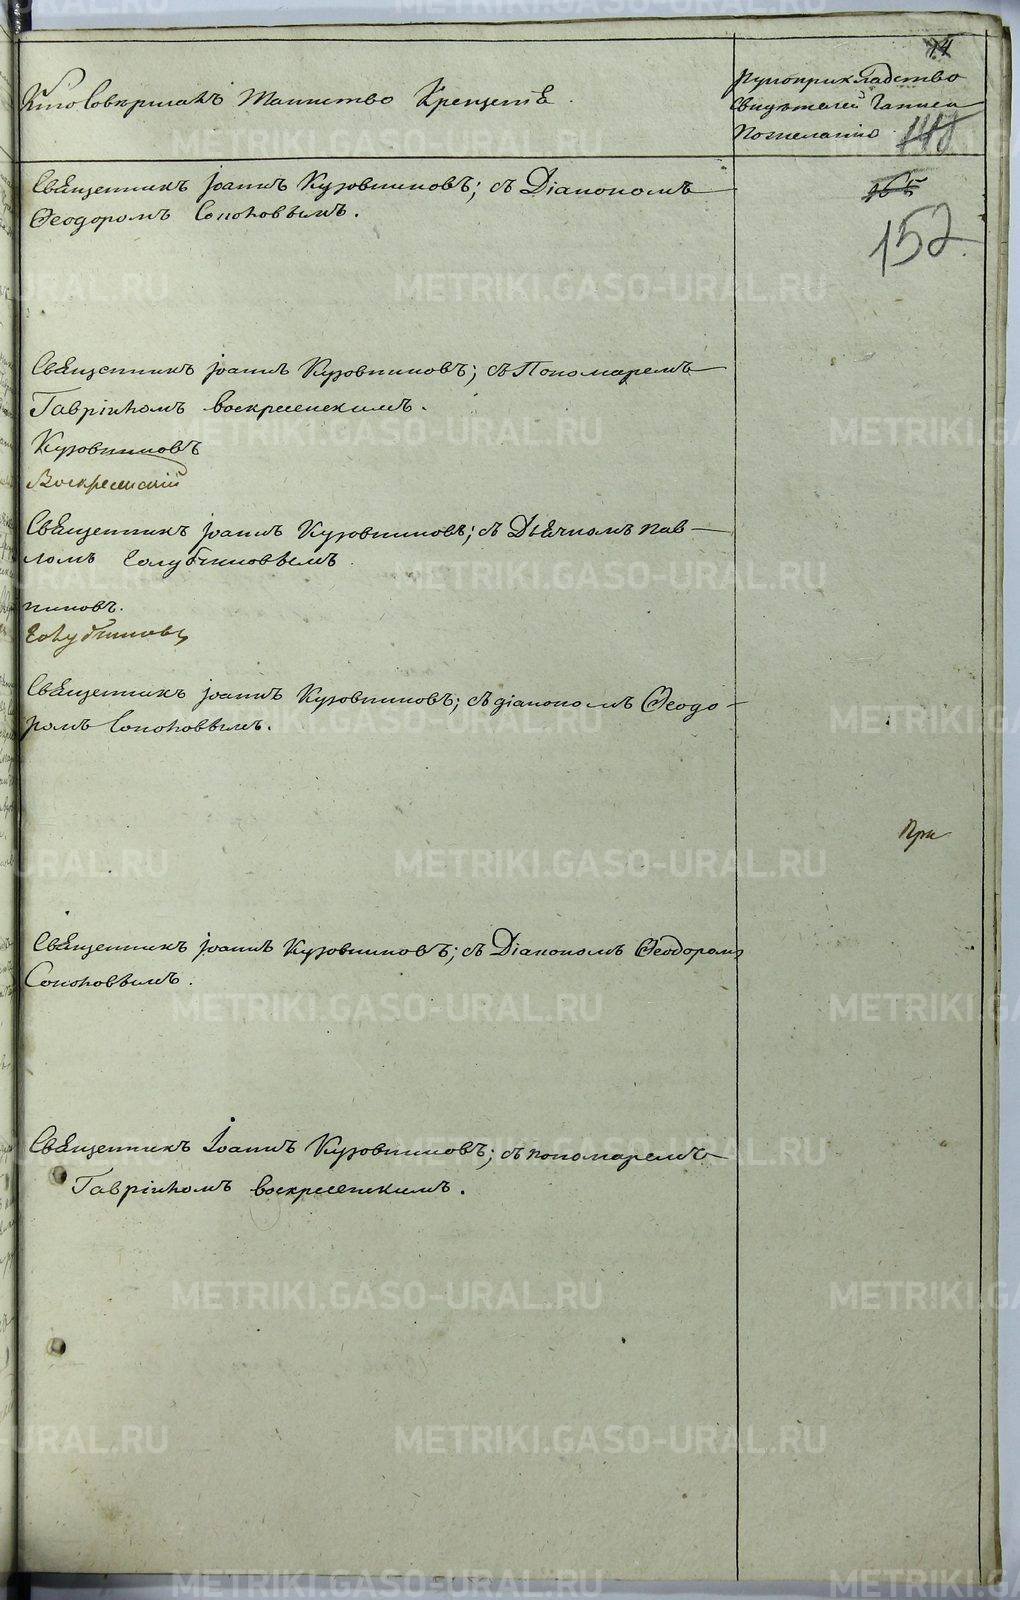 14
Кто Совершалъ Таинство Крещенія.
Рукоприкладство
Свидѣтелей Записи
Пожеланію
148
165
152.
Священникъ Іоаннъ Кузовниковъ; съ Діакономъ
Ѳеодоромъ Соколовымъ.
Священникъ Іоаннъ Кузовниковъ; съ Пономаремъ
Гавріиломъ Воскресенскимъ.
Кузовниковъ
Воскресенскій
Священникъ Іоаннъ Кузовниковъ; съ Дьячкомъ Пав-
ломъ Голубчиковымъ
никовъ.
Голубчиковъ
Священникъ Іоаннъ Кузовниковъ; съ діакономъ Ѳеодо-
ромъ Соколовымъ.
При
Священникъ Іоаннъ Кузовниковъ; съ Діакономъ Ѳеодоромъ
Соколовымъ.
Священникъ Іоаннъ Кузовниковъ; съ пономаремъ
Гавріиломъ Воскресенскимъ.
METRIKI.GASO-URAL.RU